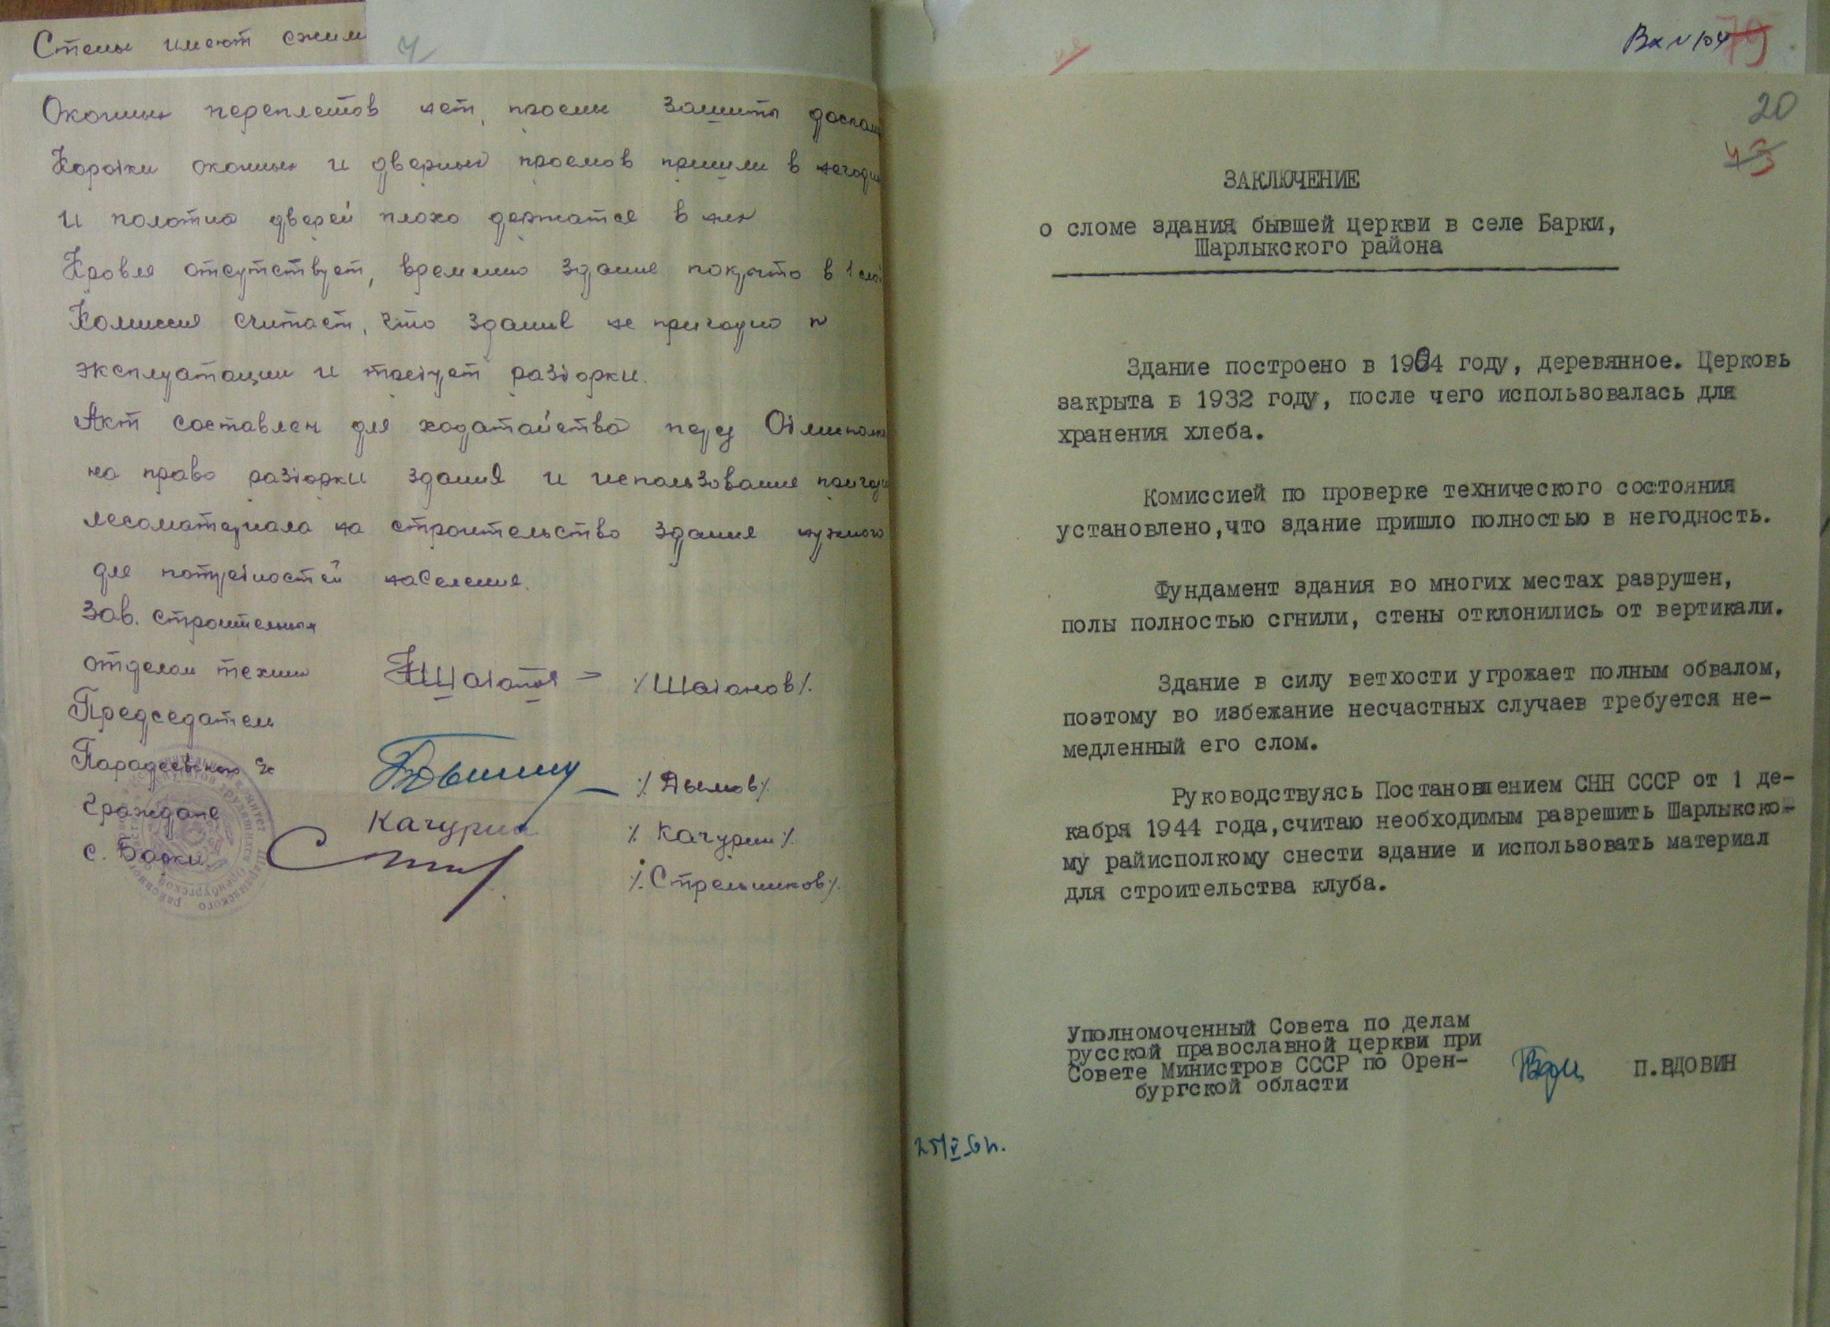 Стены имеют
Оконных переплетов нет, проемы зашиты досками
Коробки оконных и дверных проемов пришли в
и полотна дверей плохо держатся в них
Кровля отсутствует, временно здание покрыто в 1
Комиссия считает, что здание не пригодно
эксплуатации и требует разборки.
Акт составлен для ходатайства перед
на право разборки здания и использования
лесоматериала на строительство здания нужного
для потребностей населения.
Зав. строительным
отделом /Шабанов/.
Председатель
Парадеевского /Дымов/
Граждане Качурин /Качурин/.
с. Барки /Стрельников/.
Вх N
20
ЗАКЛЮЧЕНИЕ
о сломе здания бывшей церкви в селе Барки,
Шарлыкского района
Здание построено в 1904 году, деревянное. Церковь
закрыта в 1932 году, после чего использовалась для
хранения хлеба.
Комиссией по проверке технического состояния
установлено,что здание пришло полностью в негодность.
Фундамент здания во многих местах разрушен,
полы полностью сгнили, стены отклонились от вертикали.
Здание в силу ветхости угрожает полным обвалом,
поэтому во избежание несчастных случаев требуется не-
медленный его слом.
Руководствуясь Постановлением СНН СССР от 1 де-
кабря 1944 года,считаю необходимым разрешить Шарлыкско-
му райисполкому снести здание и использовать материал
для строительства клуба.
Уполномоченный Совета по делам
русской православной церкви при
Совете Министров СССР по Орен-
бургской области
П.ВДОВИН